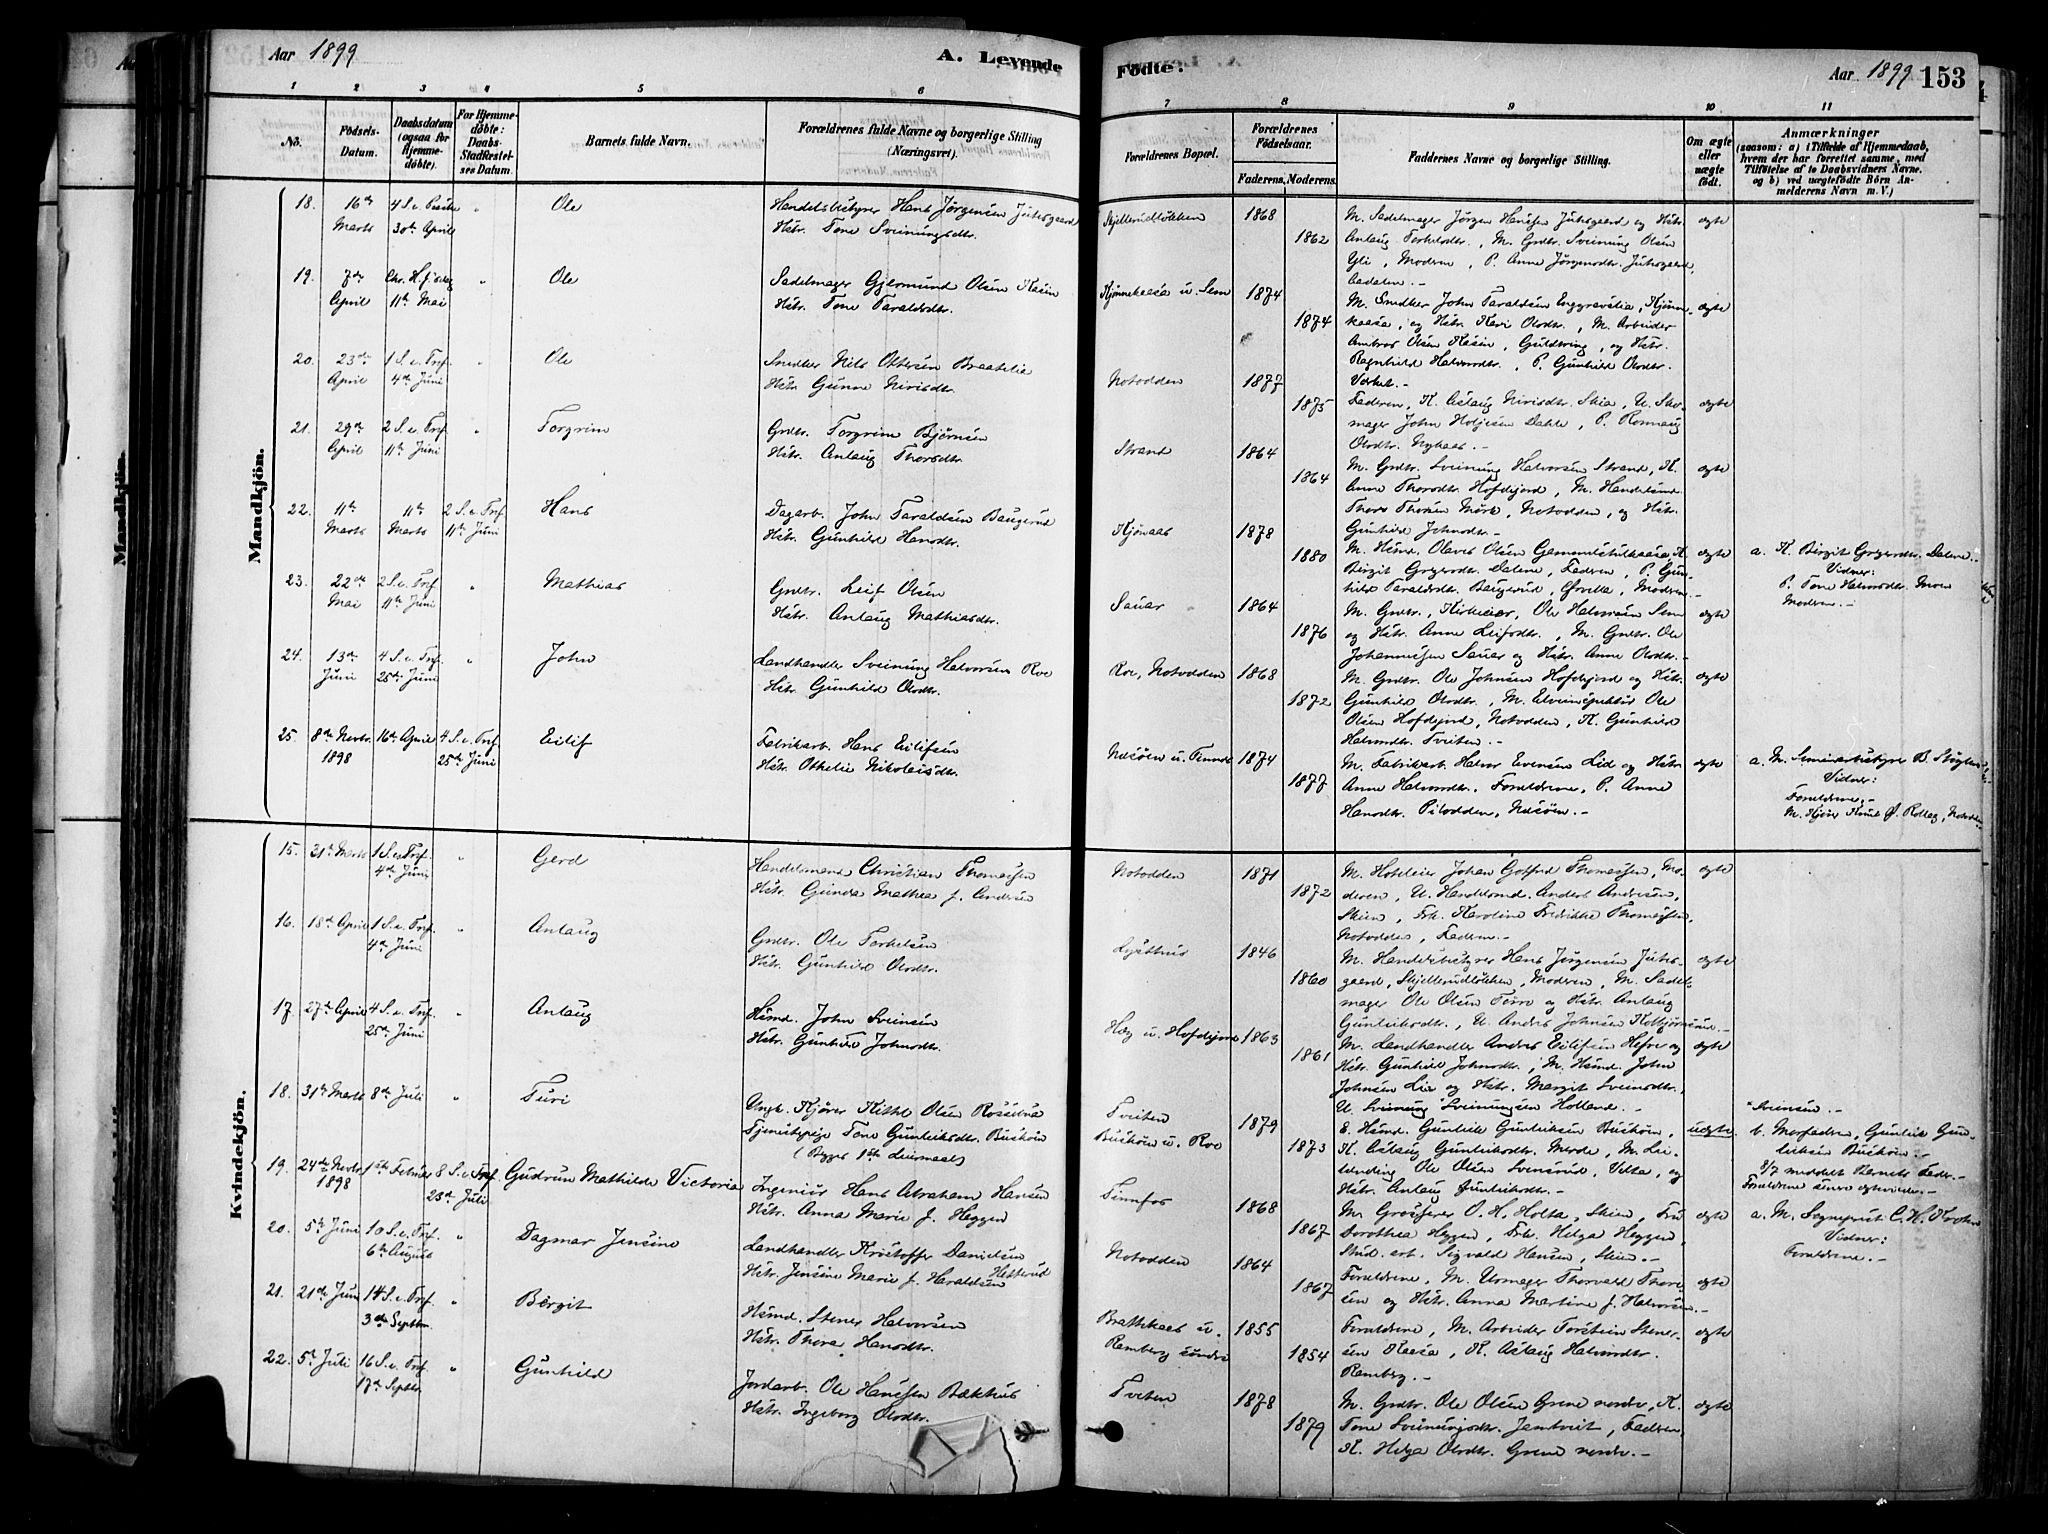 Aar 1899
A. Levende
Födte.
Aar 1899
153
1 2 3 4 5 6 7 8 9 10 11
No.
Födsels-Datum.
Daabsdatum (ogsaa for Hjemmedöbte).
For Hjemmedöbte: Daabs-Stadfæstelses Datum.
Barnets fulde Navn.
Forældrenes fulde Navne og borgerlige Stilling (Næringsvei).
Forældrenes Bopæl.
Forældrenes Födselsaar.
Faderens. Moderens.
Faddernes Navne og borgerlige Stilling.
Om ægte eller uægte födt.
Anmærkninger
(saasom: a) i Tilfælde af Hjemmedaab, hvem der har forrettet samme, med Tilföielse af to Daabsvidners Navne, og b) ved uægtefödte Börn Anmelderens Navn m. V.)
Mandkjön.
18. 16de Marts 30te April " Ole
Handelsbestyrer Hans Jørgensen Jutesgaard
Hstr. Tone Sveinungsdtr.
Skjellerudløkken 1868 1862
M. Sadelmager Jørgen Hansen Jutesgaard og Hstr.
Anlaug Torkildtr., M. Grdbr. Sveinung Olsen
Yli, Moderen, P. Anne Jørgensdtr. Jutesgaard,
ægte
19. 7de April Chr. Hf.dag 11te Mai " Ole
Sadelmager Gjermund Olsen Kasin
Hstr. Tone Taraldsdtr.
Kjønnekaasa u. Sem 1874 1874
M. Snedker John Taraldsen
og Hstr. Kari Olsdtr., M. Arbeider
Ambros Olsen Kasin, Guldbring, og Hstr.
Ragnhild Halvorsdtr., P. Gunhild Olsdtr.
ægte
20. 23de April 1 S. e. Tref. 4de Juni " Ole
Snedker Nils Ottersen Braatelie
Hstr. Gunne Nirisdtr.
Notodden 1877 1875
Faderen, K. Aslaug Nirisdtr. Skia, U. Skomager John Holjesen Dahle, P. Rønnaug
Olsdtr. Nykaas.-
ægte
21. 29de April 2 S. e. Tref. 11te Juni " Torgrim
Grdbr. Torgrim Bjørnsen
Hstr. Anlaug Thorsdtr.
Strand 1864 1864
M. Grdbr. Sveinung Halvorsen Strand, K.
Anne Thorsdtr. Hofdejord, M. Handelsmd.
Thore Thorsen Mørk, Notodden, og Hstr.
Gunhild Johnsdtr.-
ægte
22. 11te Marts 11te Marts 2 S. e. Tref. 11te Juni Hans
Dagarb. John Taraldsen Baugerud
Hstr. Gunhild Hansdtr.
Kjønaas 1878 1880
M. Hsmd. Olaves Olsen Gammelskulkaasa, K.
Birgit Gregersdtr. Dalene, Faderen, P. Gunhild Taraldsdtr. Baugerud, Ørvella, Moderen.-
ægte
a. K. Birgit Gregersdtr. Dalene.-
Vidner:
P. Tone Halvorsdtr. Moen
Moderen.-
23. 22de Mai 2 S. e. Tref. 11te Juni " Mathias
Grdbr. Leif Olsen
Hstr. Anlaug Mathiasdtr.
Sauar 1864 1876
M. Grdbr., Kirkeeier, Ole Halvorsen Sem
og Hstr. Anne Leifsdtr., M. Grdbr. Ole
Johannessen Sauar og Hstr. Anne Olsdtr.-
ægte
24. 13de Juni 4 S. e. Tref. 25de Juni " John
Landhandler Sveinung Halvorsen Roe
Hstr. Gunhild Olsdtr.
Roe, Notodden 1868 1872
M. Grdbr. Ole Johnsen Hofdejord og Hstr.
Gunhild Olsdtr., M. Elveinspektør Ole
Olsen Hofdejord, Notodden, K. Gunhild
Halvorsdtr. Tveiten.-
ægte
25. 8de Novbr. 1898 16de April 4 S. e. Tref. 25de Juni Eilif
Fabrikarb. Hans Eilifsen
Hstr. Othelie Nikolaisdtr.
Næsøen u. Tinnæs 1874 1877
M. Fabrikarb. Halvor Evensen Lid og Hstr.
Anne Halvorsdtr., Forældrene, P. Anne
Hansdtr. Pilodden, Næsøen.-
ægte
a. M. Seminarbestyrer B.
Vidner:
Forældrene,-
M. Kjører Knut Ø. Rollag, Notodden
Kvindekjön.
15. 31te Marts 1 S. e. Tref. 4de Juni " Gerd
Handelsmand Christian Thomassen
Hstr. Gunda Mathea f. Andersen
Notodden 1871 1872
M. Hoteleier Johan Gotfred Thomassen, Moderen, U. Handelsmd. Anders Andersen,
Skien, Frk. Karoline Fredrikke Thomassen,
Notodden, Faderen.-
ægte
16. 18de April 1 S. e. Tref. 4de Juni " Anlaug
Grdbr. Ole Torkelsen
Hstr. Gunhild Olsdtr.
Lysthus 1846 1860
M. Handelsbestyrer Hans Jørgensen Jutesgaard, Skjellerudløkken, Moderen, M. Sadelmager Ole Olsen Tørre og Hstr. Anlaug
Gunleiksdtr., U. Andres Johnsen Kolbjørnsrud.-
ægte
17. 27de April 4 S. e. Tref. 25de Juni " Anlaug
Hsmd. John Sveinsen
Hstr. Gunhild Johnsdtr.
Hæg u. Hofdejord 1863 1861
M. Landhandler Andres Eilifsen Hefre og
Hstr. Gunhild Johnsdtr., M. Hsmd. John
Johnsen Lie og Hstr. Margit Sveinsdtr.,
U. Sveinung Sveinungsen Holland.-
ægte
18. 31te Marts 8de Juli " Turi
Ungk. Kjører Kittil Olsen Rossebø
Tjenestepige Tone Gunleiksdtr. Buskøen
(Begges 1ste Leiermaal)
Tveiten
Buskøen u. Roe 1879 1873
E. Hsmd. Gunleik Gunleiksen Buskøen,
K. Aslaug Gunleiksdtr. Merde, M. Leilænding Ole Olsen Svensrud, og
Hstr. Anlaug Gunleiksdtr.-
uægte
b. Morfaderen, Gunleik Gunleiksen Buskøen.-
3/7 meddelt Barnets Fader.
Forældrene senere ægteviede.-
19. 24de Novbr. 1898 1ste Februar 8 S. e. Tref. 23de Juli Gudrun Mathilde Victoria
Ingeniør Hans Abraham Hansen
Hstr. Anna Marie f. Heggen
Tinnfos 1868 1867
M. Grosserer O. H. Holta, Skien, Fru
Dorothea Heggen, Frk. Helga Heggen,
Stud. art. Sigvald Hansen, Skien.-
ægte
a. M. Sogneprest C. H.
Vidner:
Forældrene.-
20. 5te Juni 10 S. e. Tref. 6te August " Dagmar Jensine
Landhandler Kristoffer Danielsen Hesterud
Hstr. Jensine Marie f. Haraldsen
Notodden 1864 1867
Forældrene, M. Urmager Thorvald Thoresen og Hstr. Anna Martine f. Halvorsen.-
ægte
21. 21de Juni 14 S. e. Tref. 3de Septbr. " Birgit
Hsmd. Stener Halvorsen
Hstr. Thora Hansdtr.
Brattekaas u. Ramberg søndre 1855 1854
Forældrene, M. Arbeider Torstein Stenersen Kaasa, K. Aslaug Halvorsdtr.
Ramberg.-
ægte
22. 5te Juli 16 S. e. Tref. 17de Septbr. " Gunhild
Jordarb. Ole Hansen Bækhus
Hstr. Ingeborg Olsdtr.
Tveiten 1878 1879
M. Grdbr. Ole Olsen Grene nordre, K.
Tone Sveinungsdtr. Jerntveit, Faderen,
K. Helga Olsdtr. Grene nordre.-
ægte